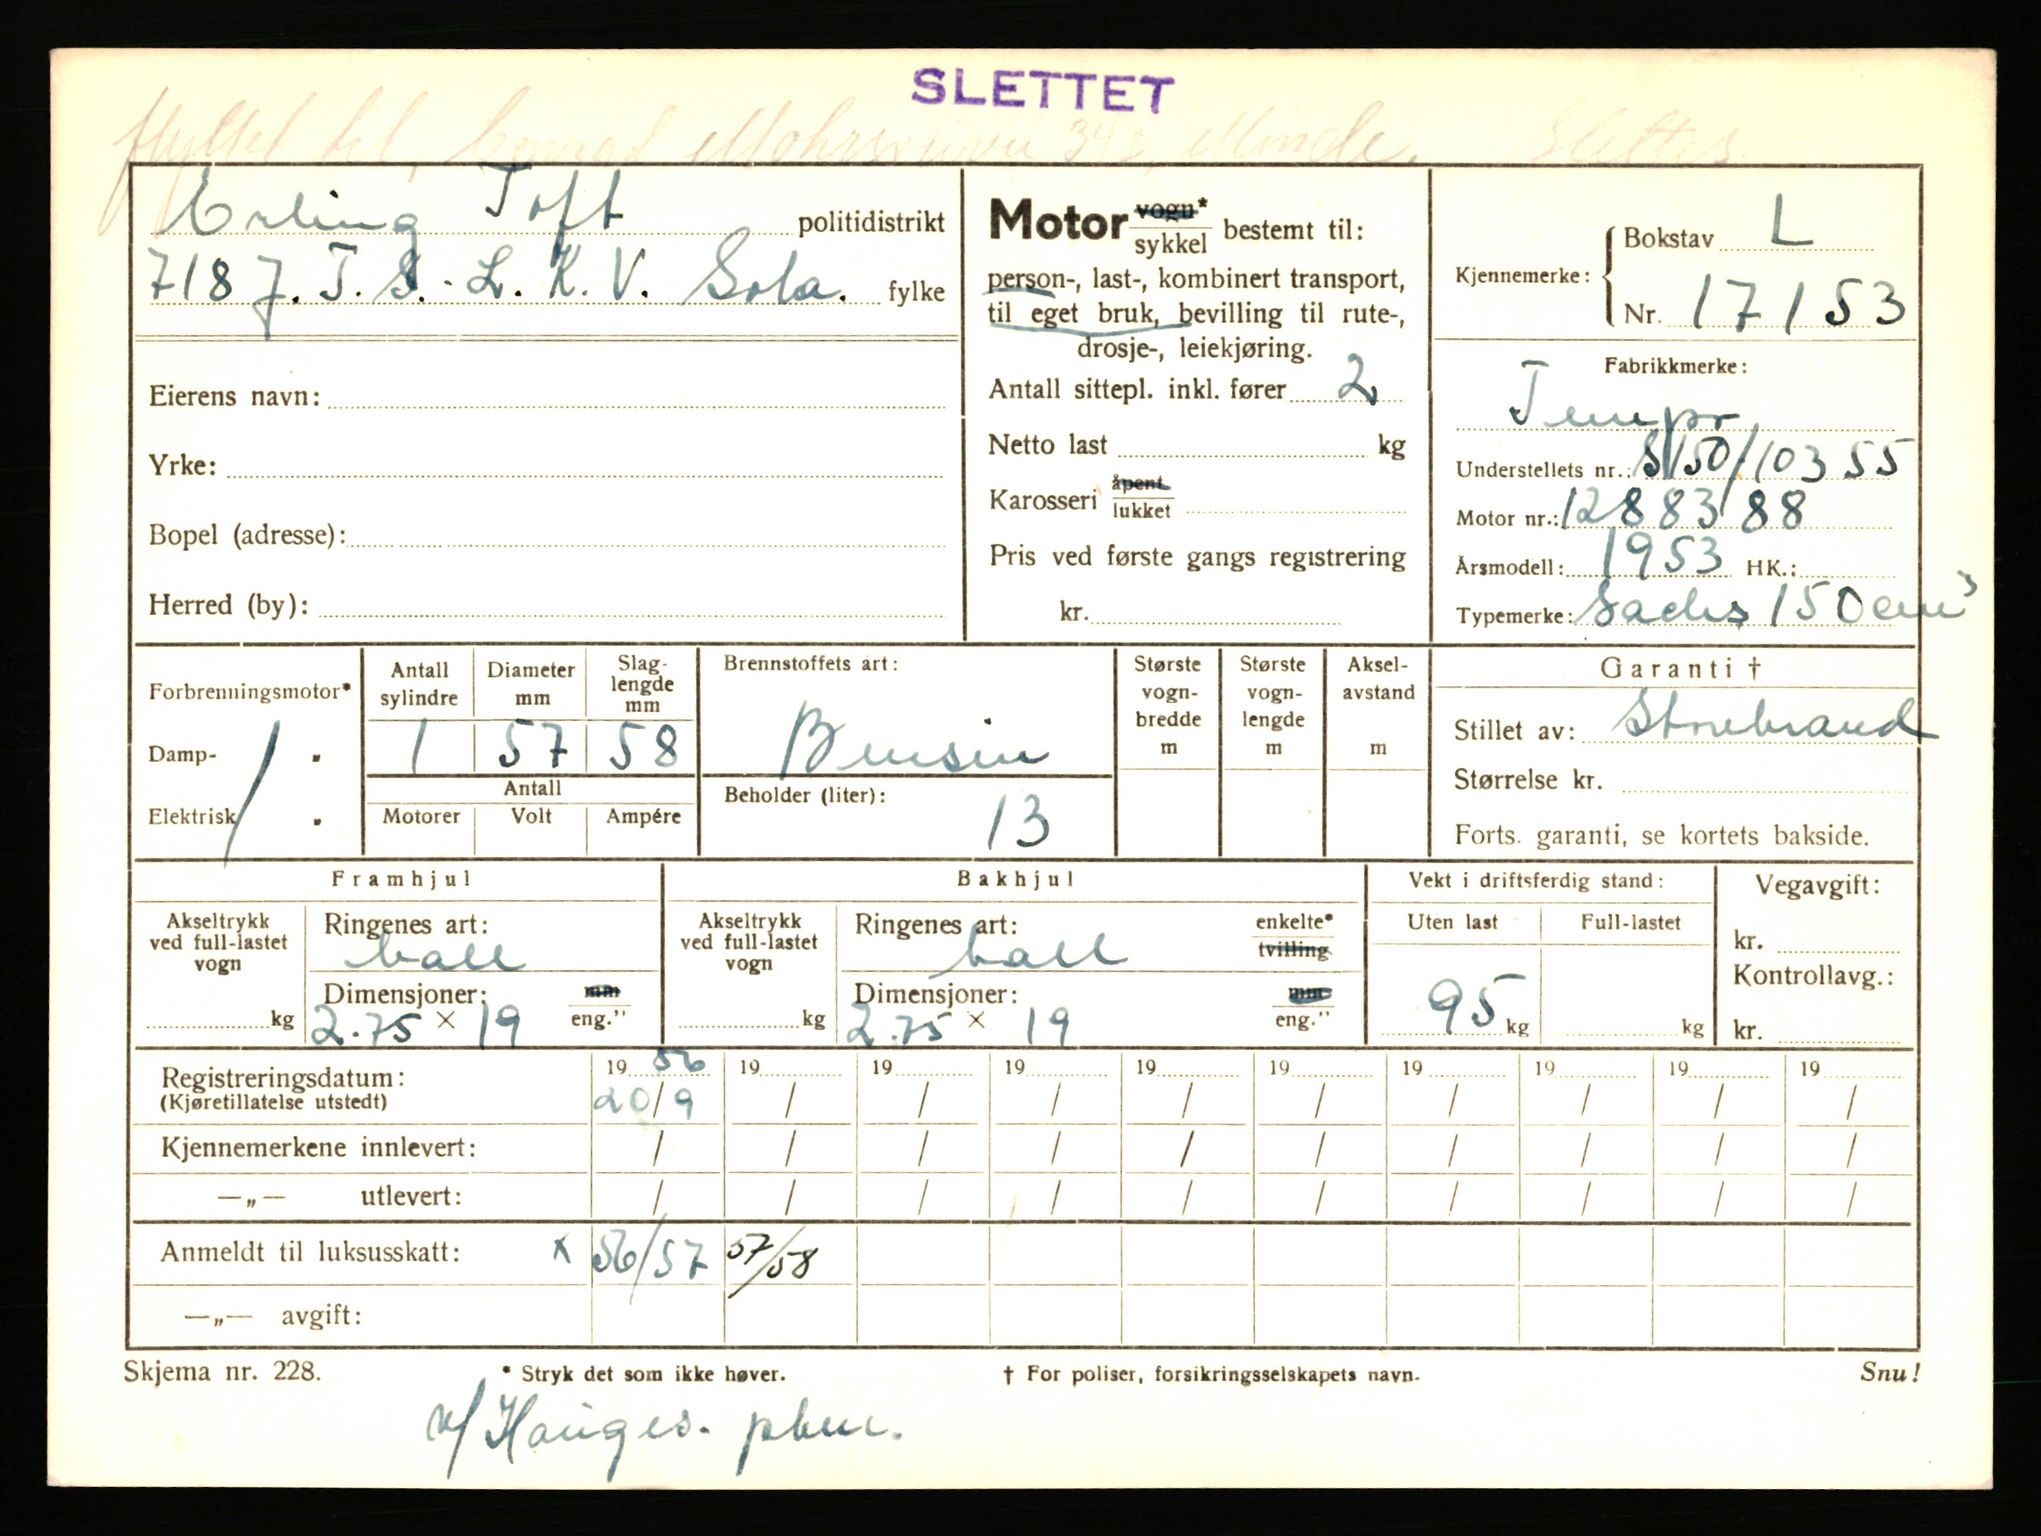 SLETTET
flyttet til Conrad Mohrsveien 34 Minde. Slettes
Erling Toft politidistrikt
7187 J. T. S. - L. K. V. Sola. fylke
Eierens navn:
Yrke:
Bopel (adresse):
Herred (by):
Motor vogn* sykkel bestemt til:
person-, last-, kombinert transport,
til eget bruk, bevilling til rute-,
drosje-, leiekjøring.
Antall sittepl. inkl. fører 2
Netto last kg
Karosseri åpent lukket
Pris ved første gangs registrering
kr.
Kjennemerke: Bokstav L
Nr. 17153
Fabrikkmerke:
Tempo
Understellets nr.: S150/10355
Motor nr.: 1288388
Årsmodell: 1953 HK.:
Typemerke: Sachs 150 cm³
Forbrenningsmotor*
Damp- "
Elektrisk "
Antall sylindre
1
Diameter mm
57
Slag-lengde mm
58
Antall
Motorer Volt Ampére
Brennstoffets art:
Bensin
Beholder (liter):
13
Største vogn-bredde m
Største vogn-lengde m
Aksel-avstand m
Garanti †
Stillet av: Storebrand
Størrelse kr.
Forts. garanti, se kortets bakside.
Framhjul
Akseltrykk ved full-lastet vogn
kg
Ringenes art:
ball
Dimensjoner: mm eng."
2.75 × 19
Bakhjul
Akseltrykk ved full-lastet vogn
kg
Ringenes art: enkelte* tvilling
ball
Dimensjoner: mm eng."
2.75 × 19
Vekt i driftsferdig stand:
Uten last Full-lastet
95 kg kg
Vegavgift:
kr.
Kontrollavg.:
kr.
19 56 19 19 19 19 19 19 19 19 19
Registreringsdatum:
(Kjøretillatelse utstedt) 20/9 / / / / / / / / /
Kjennemerkene innlevert: / / / / / / / / / /
—„— utlevert: / / / / / / / / / /
Anmeldt til luksusskatt: x 56/57 57/58
—„— avgift:
Skjema nr. 228. * Stryk det som ikke høver. † For poliser, forsikringsselskapets navn. Snu!
v/ Hauges.